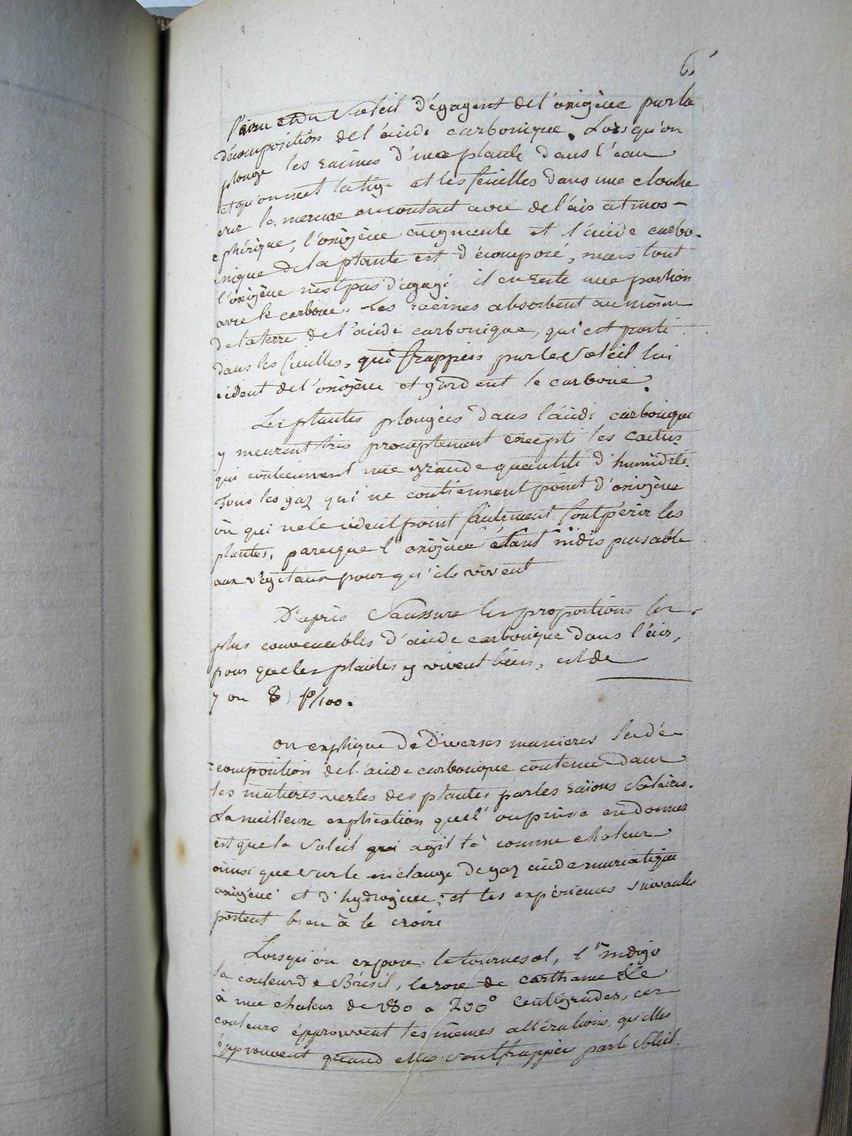 6
l'eau et du Soleil dégagent de l'oxigène par la
décomposition de l'acide carbonique. Lorsqu'on
plonge les racines d'une plante dans l'eau
et qu'on met la tige et les feuilles dans une cloche
sur le mercure en contact avec de l'air atmos-
phérique, l'oxigène augmente et l'acide carbo-
nique de la plante est décomposé, mais tout
l'oxigène n'est pas dégagé il en reste une portion
avec le carbone. Les racines absorbent au moïen
de la terre de l'acide carbonique, qui est porté
dans les feuilles, qui frappées par le Soleil lui
cident de l'oxigène et gardent le carbone.
Les plantes plongées dans l'acide carbonique
y meurent très promptement excepté les cactus
qui contiennent une grande quantité d'humidité.
Tous les gaz qui ne contiennent point d'oxigène
où qui ne le cident point facilement font périr les
plantes, parceque l'oxigène étant indispensable
aux végétaux pour qu'ils vivent
D'après Saussure les proportions les
plus convenables d'acide carbonique dans l'air,
pour que les plantes y vivent bien, est de
7 ou 8 p/100.
on explique de diverses manieres la dé-
composition de l'acide carbonique contenu dans
les matières vertes des plantes par les raïons Solaires.
La meilleure explication quel'on puisse en donner
est que le Soleil agit là comme chaleur
ainsi que sur le mélange de gaz acide muriatique
oxigéné et d'hydrogène, et les expériences suivantes
portent bien à le croire
Lorsqu'on expose le tournesol, l'indigo
la couleur de Brésil, le rose de carthame &c
à une chaleur de 180 a 200° Centigrades, ces
couleurs épprouvent les mêmes altérations qu'elles
épprouvent quand elles sont frappées par le Soleil.